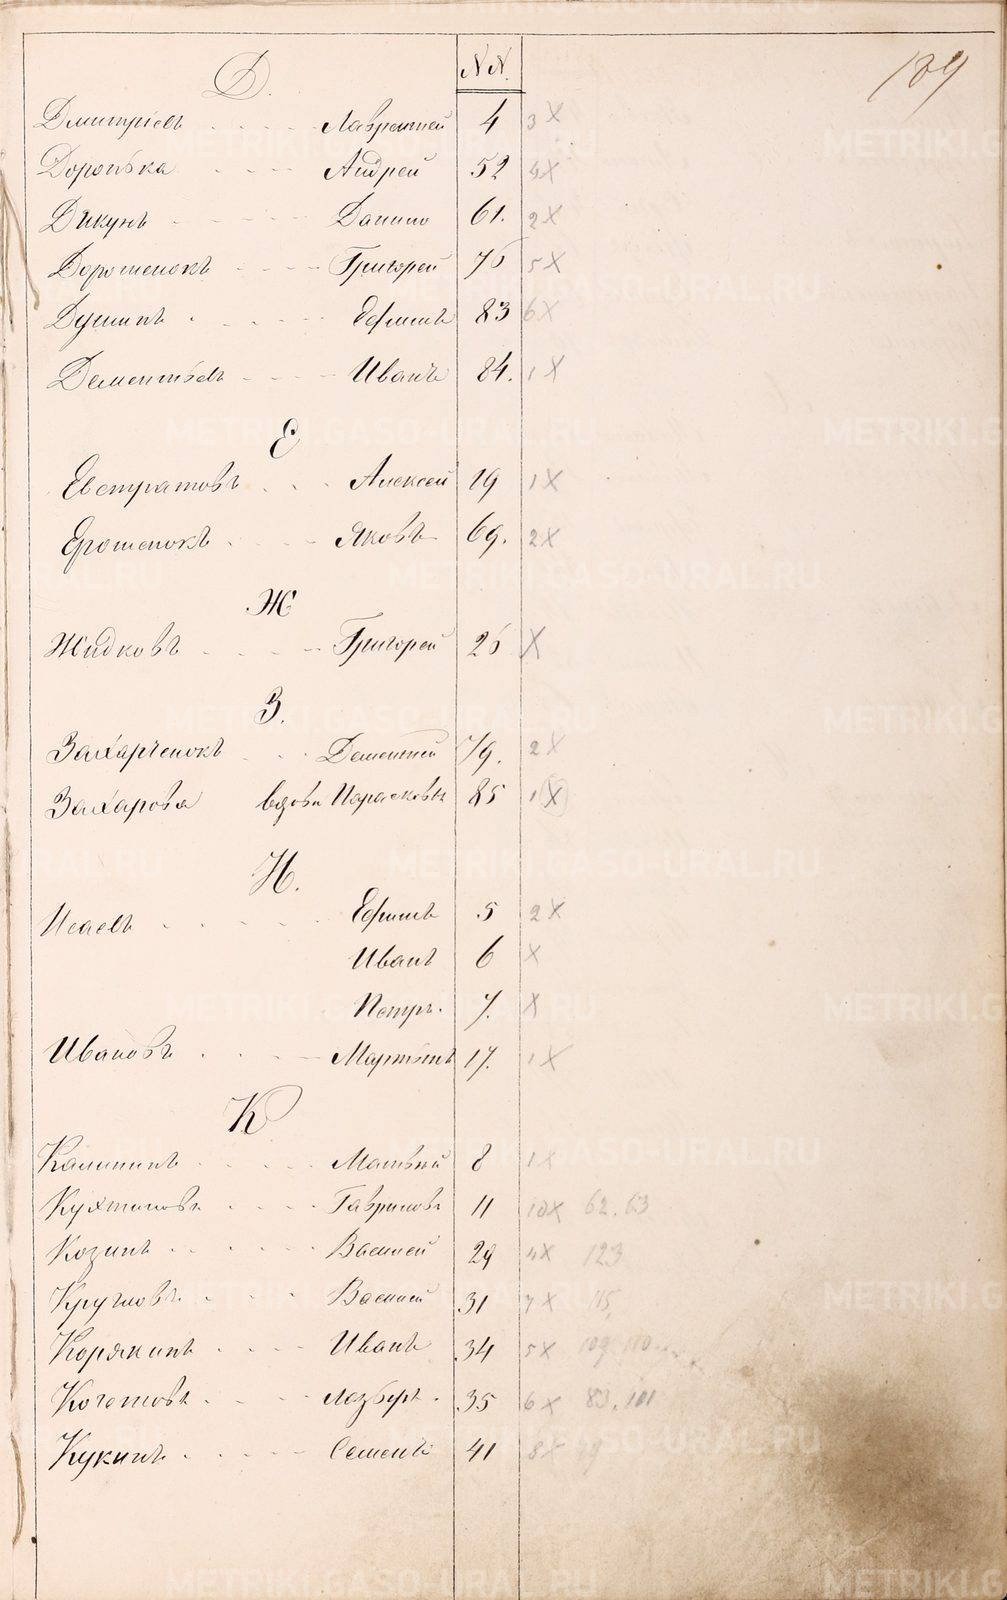 139
Д. NN.
Дмитріевъ Лаврентей 4 3 X
Доронька Андрей 52 4X
Дикунъ Данило 61. 2 X
Дорошенокъ Григорей 76 5 X
Ефимъ 83 6X
Дементьевъ Иванъ 84. 1 X
Е
Евстратовъ Алексей 19 1 X
Ерошенокъ Яковъ 69. 2X
Ж
Жидковъ Григорей 26 X
З.
Захарченокъ Дементей 79. 2 X
Захарова вдова Парасковья 85 1 X
И.
Исаевъ Ефимъ 5 2 X
Иванъ 6 X
Петръ. 7. X
Ивановъ Мартынъ 17. 1 X
К
Калининъ Матвей 8 1 X
Кухтиновъ Гавриловъ 11 10X 62. 63
Козинъ Василей 29 4X 123
Кругловъ Василей 31 7 X 115,
Корякинъ Иванъ 34 5 X 109 110
Кочетовъ 35 6 X 83. 101
Кукинъ Семенъ 41 8X 49
METRIKI.GASO-URAL.RU